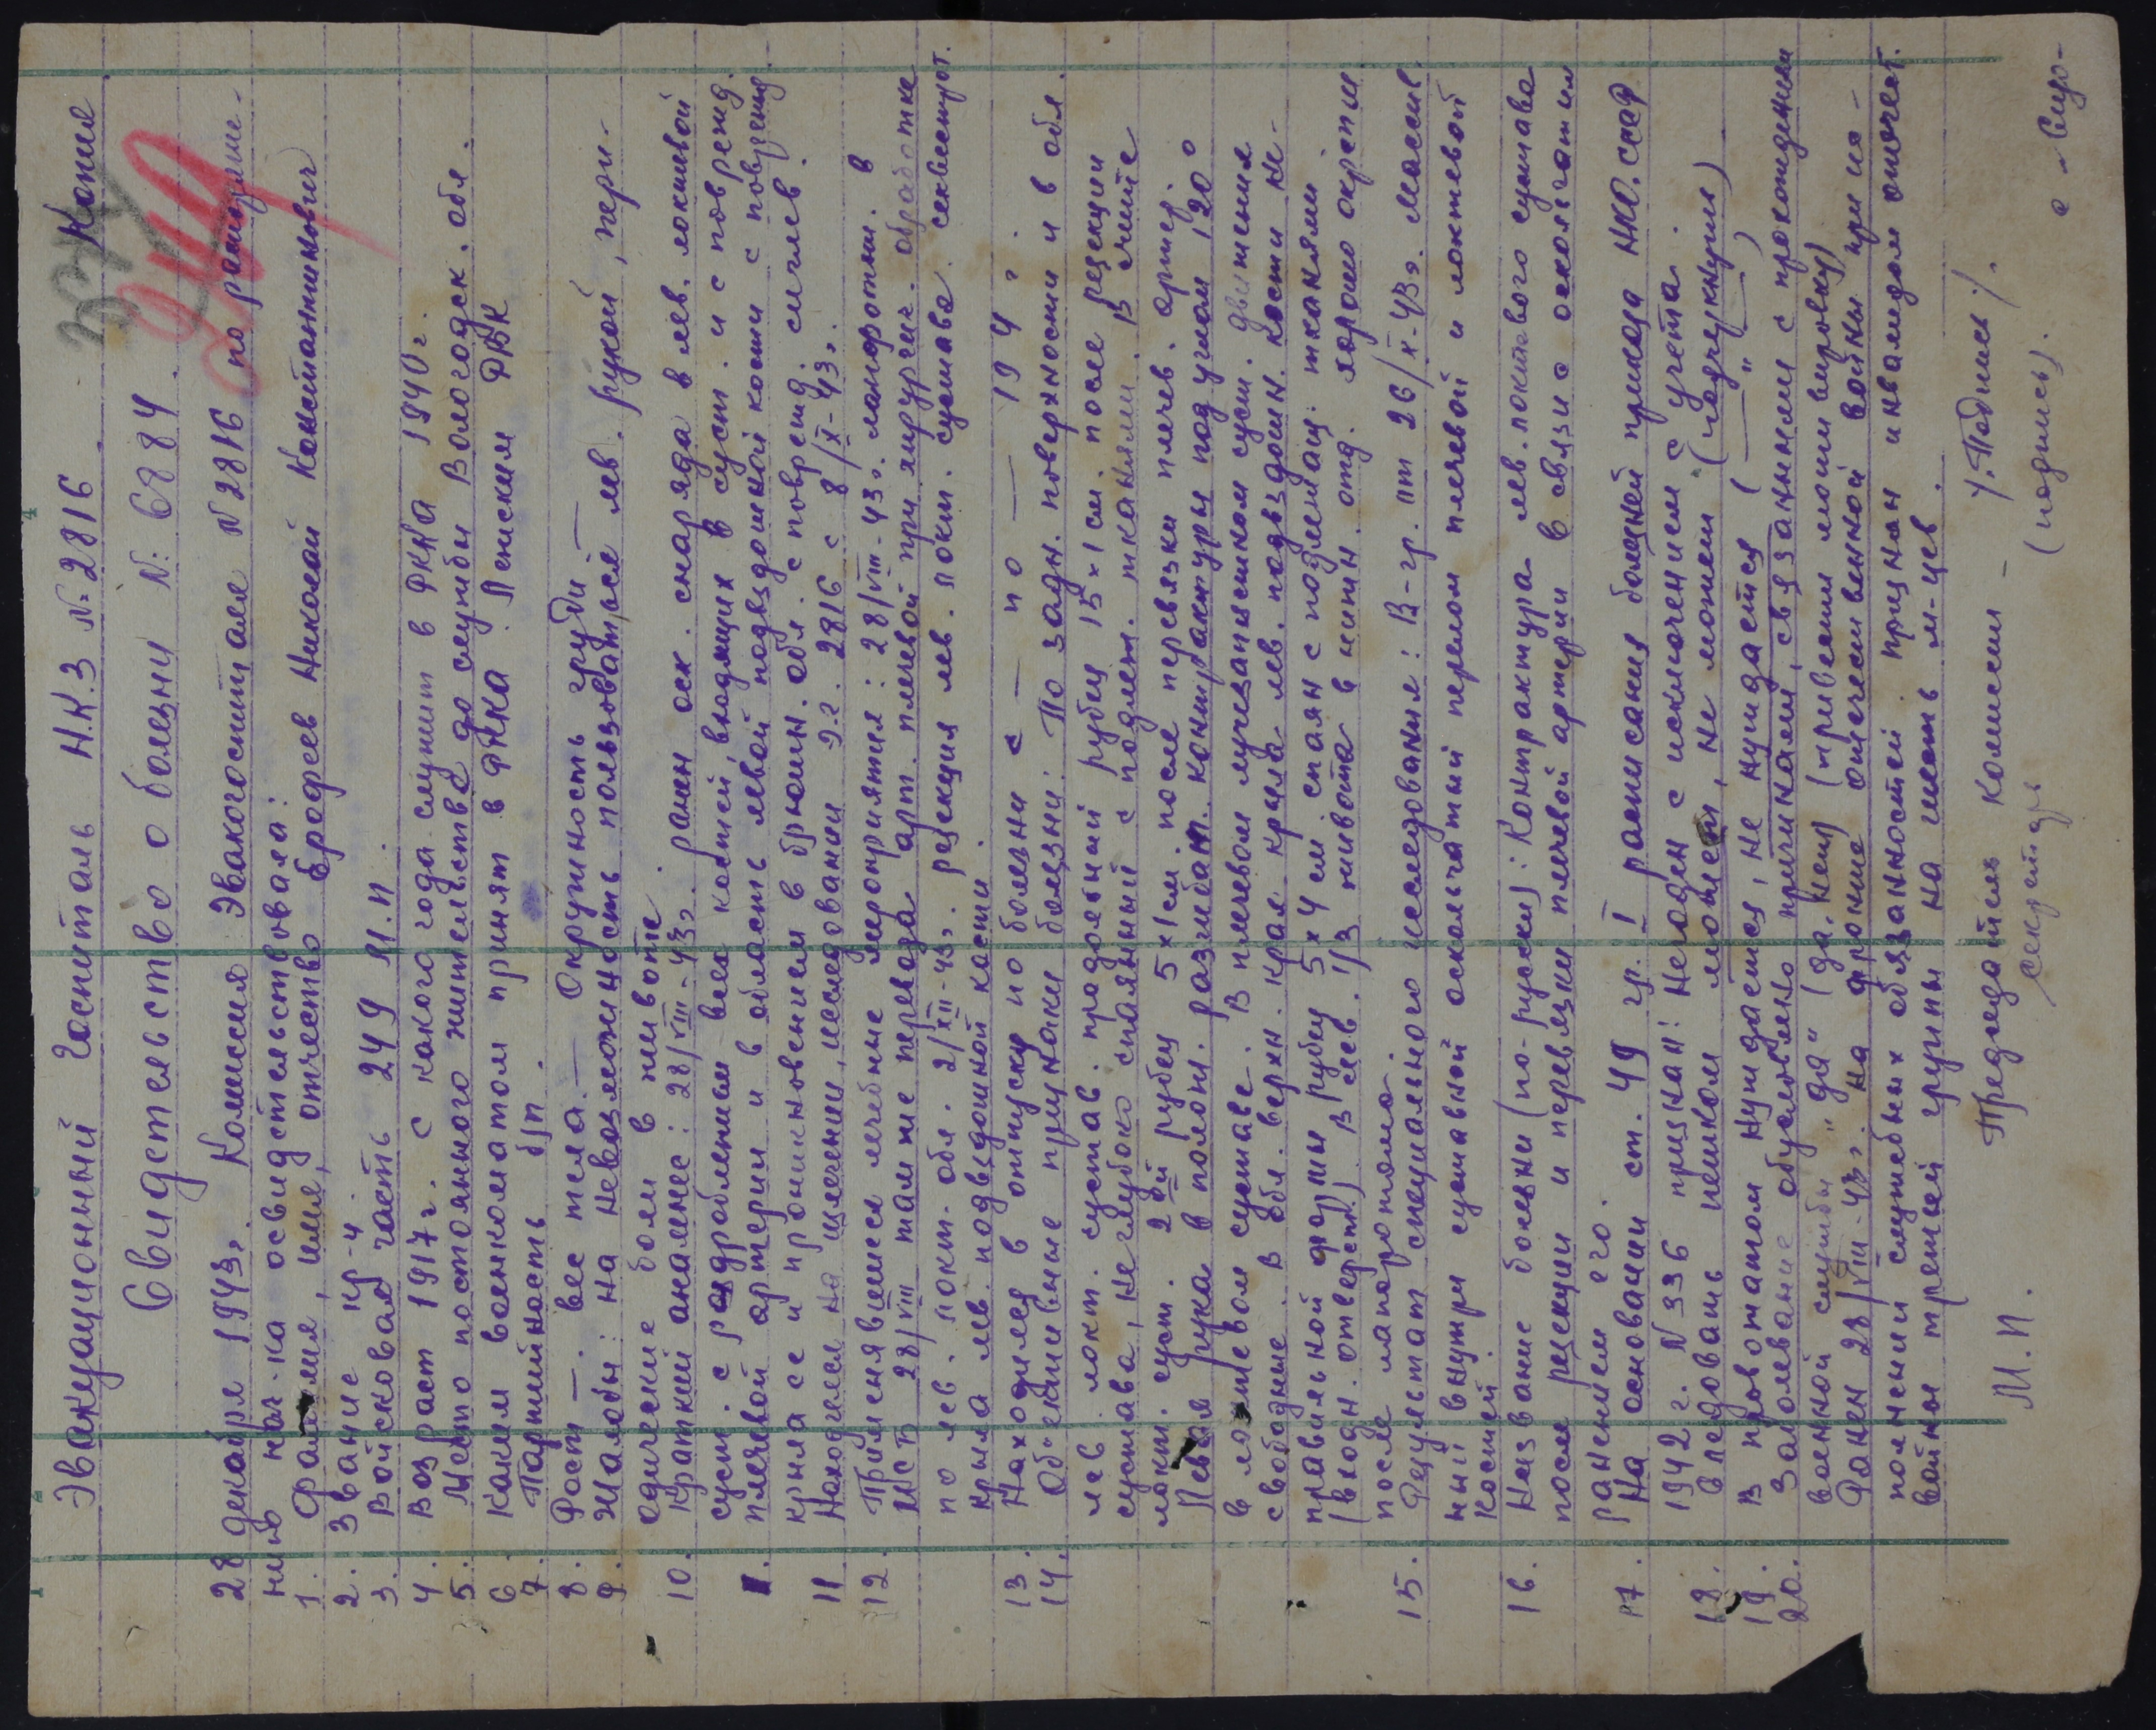 Копия
Эвакуационный Госпиталь Н.К.З № 2816.
Свидетельство о болезни №: 6884.
28 декабря 1943г. Комиссия Эвакогоспиталя № 2816 по распоряже-
нию нач-ка освидетельствовала:
1. Фамилия, имя, отчество Ерофеев Николай Константинович
2. Звание кр-ц
3. Войсковая часть 249 М.П.
4. Возраст 1917г. с какого года служит в РККА 1940г.
5. Место постоянного жительства до службы Вологодск. обл.
6. Каким военкоматом принят в РККА. Лежским РВК
7. Партийность б/п.
8. Рост —. вес тела. — Окружность груди —
9. Жалобы: на невозможность пользоваться лев. рукой, пери-
одические боли в животе.
10. Краткий анамнез: 28/VIII-43г. ранен оск. снаряда в лев. локтевой
суст. с раздроблением всех костей, входящих в суст. и с поврежд.
плечевой артерии и в область левой подвздошной кости с поврежд.
крыла ее и проникновением в брюшин. обл. с поврежд. сигмов.
11. Находился на излечении, исследовании Э.Г. 2816 с 8/X-43г.
12. Применявшиеся лечебные мероприятия: 28/VIII-43г. лапоротом. в
МСБ 28/VIII там же перевяз. арт. плечевой при хирургич. обработке
по лев. локт. обл. 2/XII-43г. резекция лев. локт. сустава. секвестрот.
крыла лев. подвздошной кости.
13. Находился в отпуску по болезни с — по — 194 г.
14. Объективные признаки болезни: По задн. поверхности и в обл.
лев. локт. сустав. продольный рубец 15×1 см. после резекции
сустава, не глубоко спаянный с подлеж. тканями. В сгибе
локт. суст. 2ой рубец 5×1 см. после перевязки плечев. артер.
Левая рука в полож. разгибат. контрактуры под углом 120°
в локтевом суставе. В плечевом лучезапястном суст. движения
свободные. В обл. верхн. края крыла лев. подвздошн. кости не-
правильной формы рубец 5×4 см спаян с подлежащ. тканями
(входн. отверст.) В лев. 1/3 живота в нижн. отд. хорошо окрепш
после лапоротомо.
15. Результат специального исследования: В-гр. от 26/X-43г. массив
ный внутри суставной оскольчатый перелом плечевой и локтевой
костей.
16. Название болезни (по-русски): Контрактура лев. локтевого сустава
после резекции и перевязки плечевой артерии в связи с оскольчатым
ранением его.
17. На основании ст. 49 гр. I расписания болезней приказа НКО.СССР
1942 г. № 336 признан: Негоден с исключением с учета.
18. Следовать пешком может, не может (подчеркнуть)
19. В провожатом нуждается, не нуждается (— " —)
20. Заболевание обусловлено причинами, связанными с прохождения
военной службы „да" (да, нет)
Ранен 28/VIII-43г. на фронте отечественной войны при ис-
полнении служебных обязанностей. признан инвалидом отечест.
войны третьей группы на шесть м-цев.
М.П. Председатель Комиссии – /. Подпись /.
секретарь (подпись).